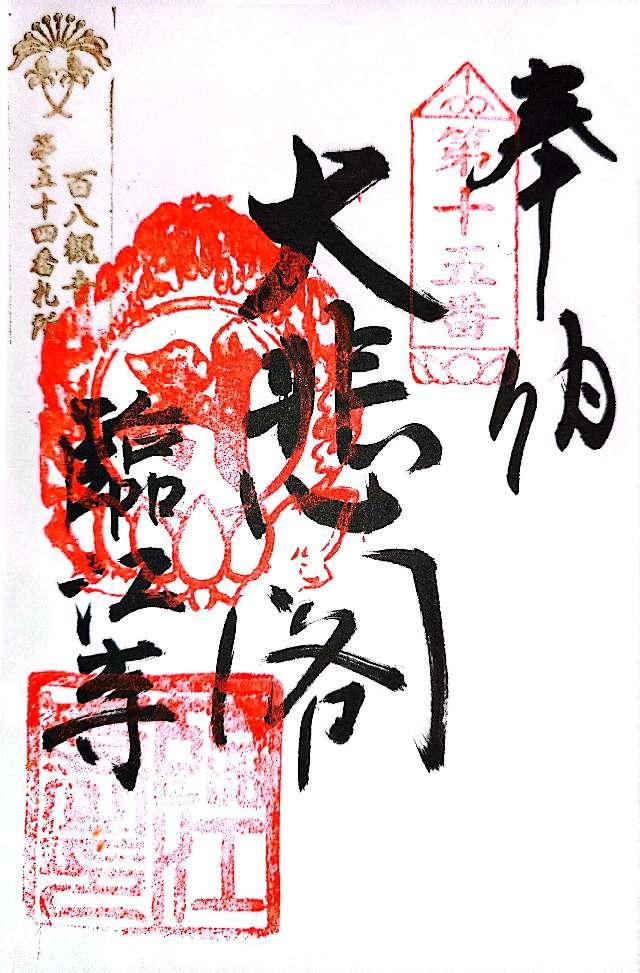 奉納
第十五番
大悲閣
臨江寺
百八観音
第五十四番札所